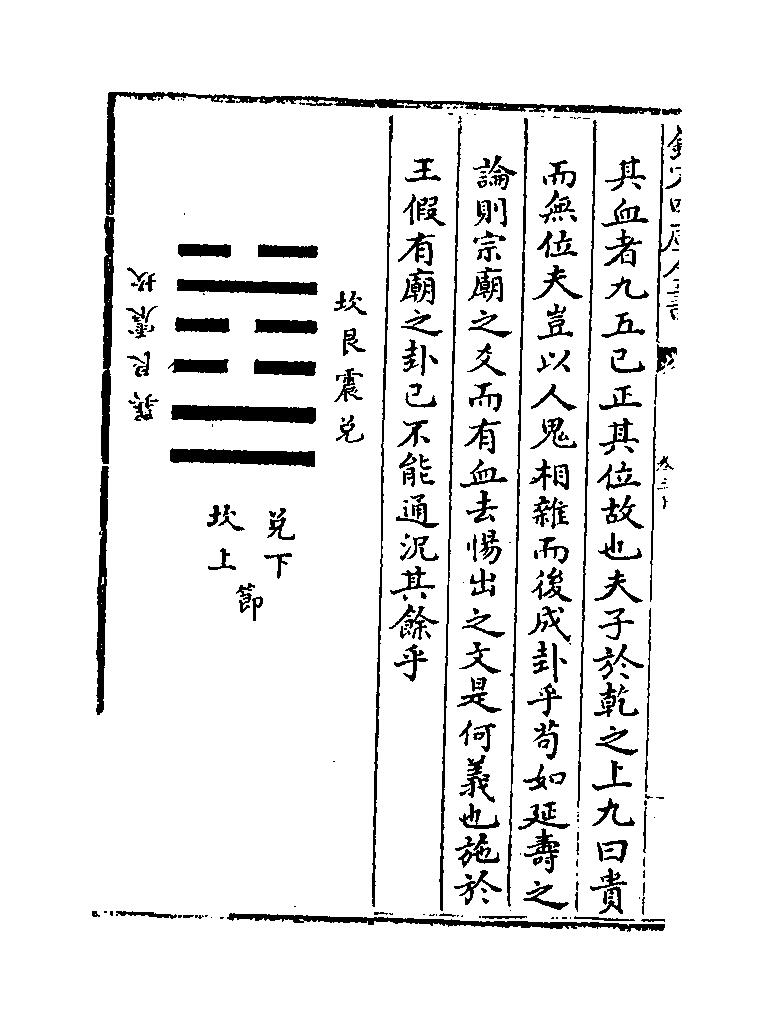 其血者九五已正其位故也夫子於乾之上九曰貴
而無位夫豈以人鬼相雜而後成卦乎苟如延壽之
論則宗廟之爻而有血去惕出之文是何義也施於
王假有廟之卦已不能通況其餘乎
坎艮震兌
兌下
坎上
節
坎震艮巽